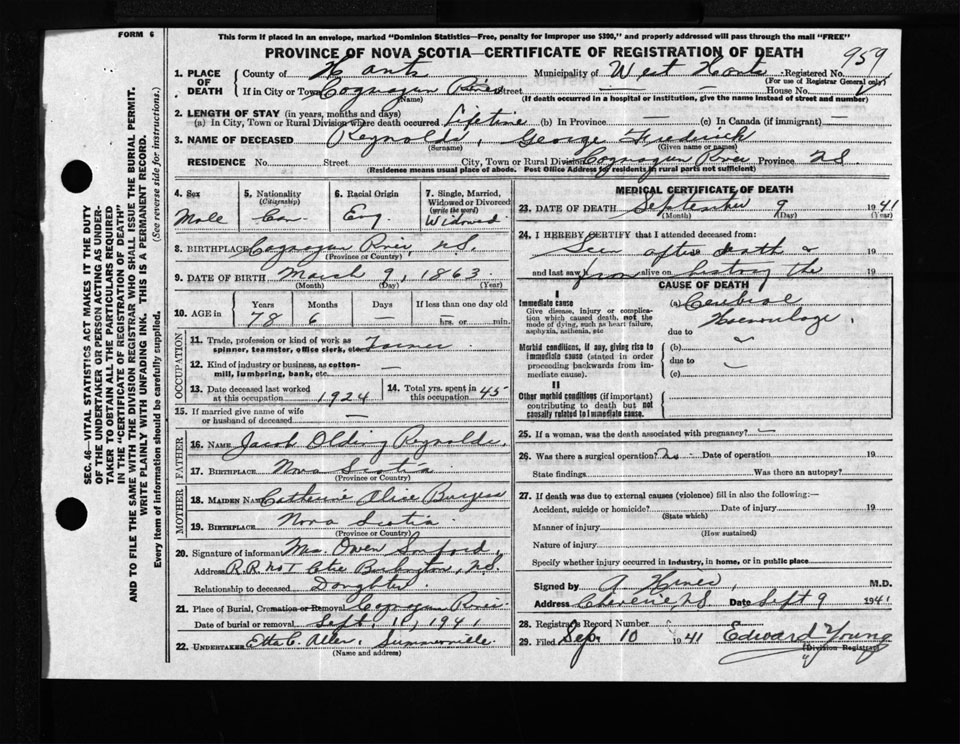 FORM 6
This form if placed in an envelope, marked "Dominion Statistics—Free, penalty for improper use $300," and properly addressed will pass through the mail "FREE"
PROVINCE OF NOVA SCOTIA—CERTIFICATE OF REGISTRATION OF DEATH
959
1. PLACE OF DEATH
County of Hants Municipality of West Hants Registered No.
(For use of Registrar General only)
If in City or Town Cogmagun River Street — House No. —
(Name) (If death occurred in a hospital or institution, give the name instead of street and number)
2. LENGTH OF STAY (in years, months and days)
(a) In City, Town or Rural Division where death occurred Lifetime (b) In Province — (c) In Canada (if immigrant) —
3. NAME OF DECEASED Reynolds, George Fredrick
(Surname) (Given name or names)
RESIDENCE No. Street City, Town or Rural Division Cogmagun River Province NS
(Residence means usual place of abode. Post Office Address for residents in rural parts not sufficient)
SEC. 46—VITAL STATISTICS ACT MAKES IT THE DUTY
OF THE UNDERTAKER OR PERSON ACTING AS UNDER-
TAKER TO OBTAIN ALL THE PARTICULARS REQUIRED
IN THE "CERTIFICATE OF REGISTRATION OF DEATH"
AND TO FILE THE SAME WITH THE DIVISION REGISTRAR WHO SHALL ISSUE THE BURIAL PERMIT.
WRITE PLAINLY WITH UNFADING INK. THIS IS A PERMANENT RECORD.
Every item of information should be carefully supplied. (See reverse side for instructions.)
4. Sex
Male
5. Nationality
(Citizenship)
Can
6. Racial Origin
Eng
7. Single, Married, Widowed or Divorced
(write the word)
Widowed
8. BIRTHPLACE Cogmagun River, N.S.
(Province or Country)
9. DATE OF BIRTH March 9, 1863
(Month) (Day) (Year)
10. AGE in
Years Months Days If less than one day old
78 6 — — hrs. or — min.
OCCUPATION
11. Trade, profession or kind of work as
spinner, teamster, office clerk, etc. Farmer
12. Kind of industry or business, as cotton-
mill, lumbering, bank, etc. —
13. Date deceased last worked
at this occupation 1924
14. Total yrs. spent in
this occupation 45
15. If married give name of wife
or husband of deceased —
FATHER
16. NAME Jacob Olding Reynolds
17. BIRTHPLACE Nova Scotia
(Province or Country)
MOTHER
18. MAIDEN NAME Catherine Alice Burgess
19. BIRTHPLACE Nova Scotia
(Province or Country)
20. Signature of informant Mrs. Owen Sanford,
Address R.R. No 1 Burlington, N.S.
Relationship to deceased Daughter
21. Place of Burial, Cremation or Removal Cogmagun River
Date of burial or removal Sept. 11, 1941
22. UNDERTAKER Etta C. Allen, Summerville
(Name and address)
MEDICAL CERTIFICATE OF DEATH
23. DATE OF DEATH September 9 1941
(Month) (Day) (Year)
24. I HEREBY CERTIFY that I attended deceased from:
Seen after death & 19
and last saw from alive on history the 19
CAUSE OF DEATH
I
Immediate cause
Give disease, injury or complica-
tion which caused death, not the
mode of dying, such as heart failure,
asphyxia, asthenia, etc
(a) Cerebral
Haemorrhage.
due to
Morbid conditions, if any, giving rise to
immediate cause (stated in order
proceeding backwards from im-
mediate cause).
(b)
due to
(c)
II
Other morbid conditions (if important)
contributing to death but not
causally related to immediate cause.
25. If a woman, was the death associated with pregnancy? —
26. Was there a surgical operation? no Date of operation 19
State findings Was there an autopsy?
27. If death was due to external causes (violence) fill in also the following:—
Accident, suicide or homicide? Date of injury 19
(State which)
Manner of injury
(How sustained)
Nature of injury
Specify whether injury occurred in industry, in home, or in public place
Signed by M.D.
Address Cheverie, NS Date Sept 9 1941
28. Registrar's Record Number
29. Filed Sep. 10 1941 Edward Young
(Division Registrar)